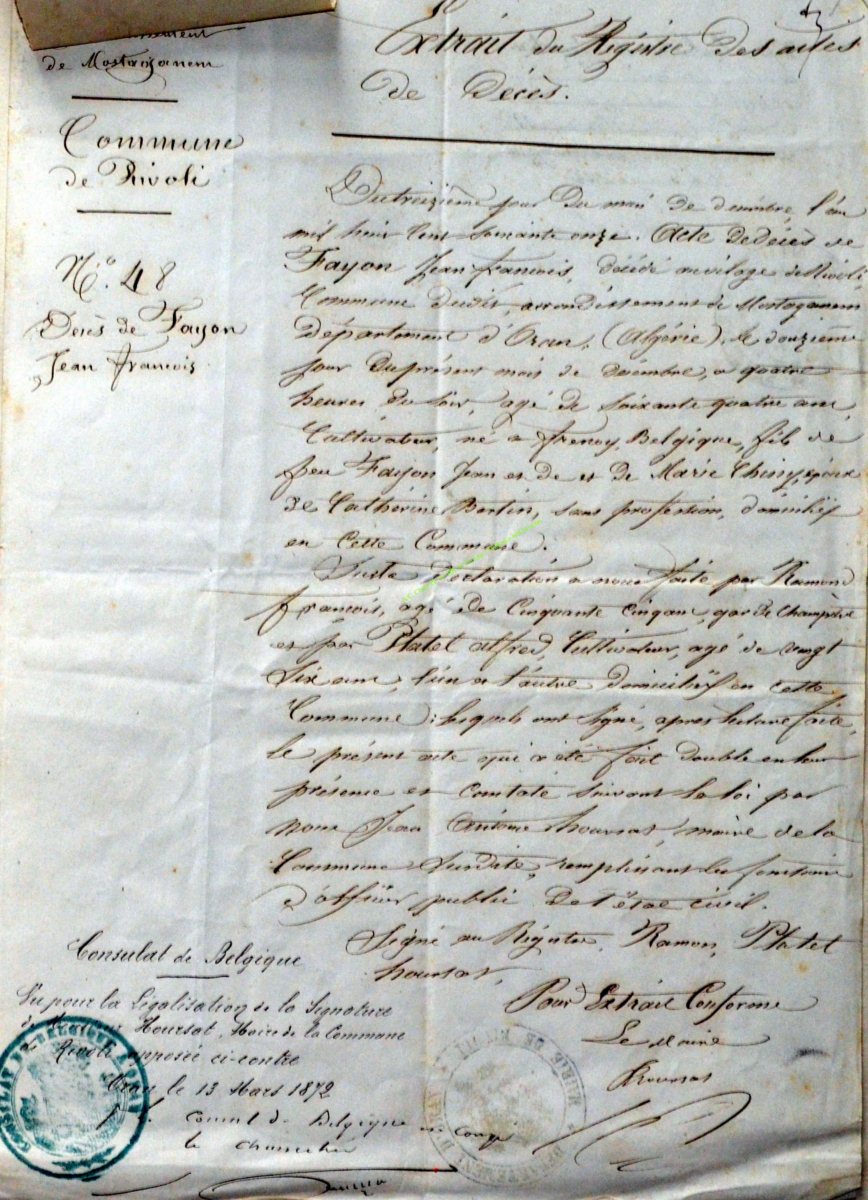 de Mostaganem
Commune
de Rivoli
N.° 48
Décès de Fayon
Jean François
Extrait du Régistre des actes
de Décès.
Du treizième jour du mois de décembre, l'an
mil huit cent soixante onze. Acte de décès de
Fayon Jean François, décédé au vilage de Rivoli
Commune dudit, arrondissement de Mostaganem
département d'Oran, (Algérie), le douzième
jour du présent mois de décembre, a quatre
heures du soir, agé de soixante quatre ans,
Cultivateur, né a frenoy, Belgique, fils de
feu Fayon Jean et de et de Marie Chiny, époux
de Catherine Bertin, sans profession, domiciliés
en cette Commune.
Sur la déclaration a nous faite par Ramond
françois, agé de cinquante cinq ans, garde champêtre
et par Platet alfred, Cultivateur, agé de vingt
six ans, l'un et l'autre domiciliés en cette
Commune; lesquels ont signé, apres lecture faite,
le présent acte qui a été fait double en leur
présence et constaté suivant la loi par
nous Jean Antoine hoursat, maire de la
Commune susdite, remplissant les fonctions
d'officier public de l'état civil.
Signé au Régistre, Ramon, Platet
hoursat,
Pour Extrait Conforme
Le Maire
Hoursat
Consulat de Belgique
Vu pour la Légalisation de la Signature
de Hoursat, Maire de la Commune
Rivoli apposée ci-contre
Oran le 13 Mars 1872
consul de Belgique en congé
le chancelier